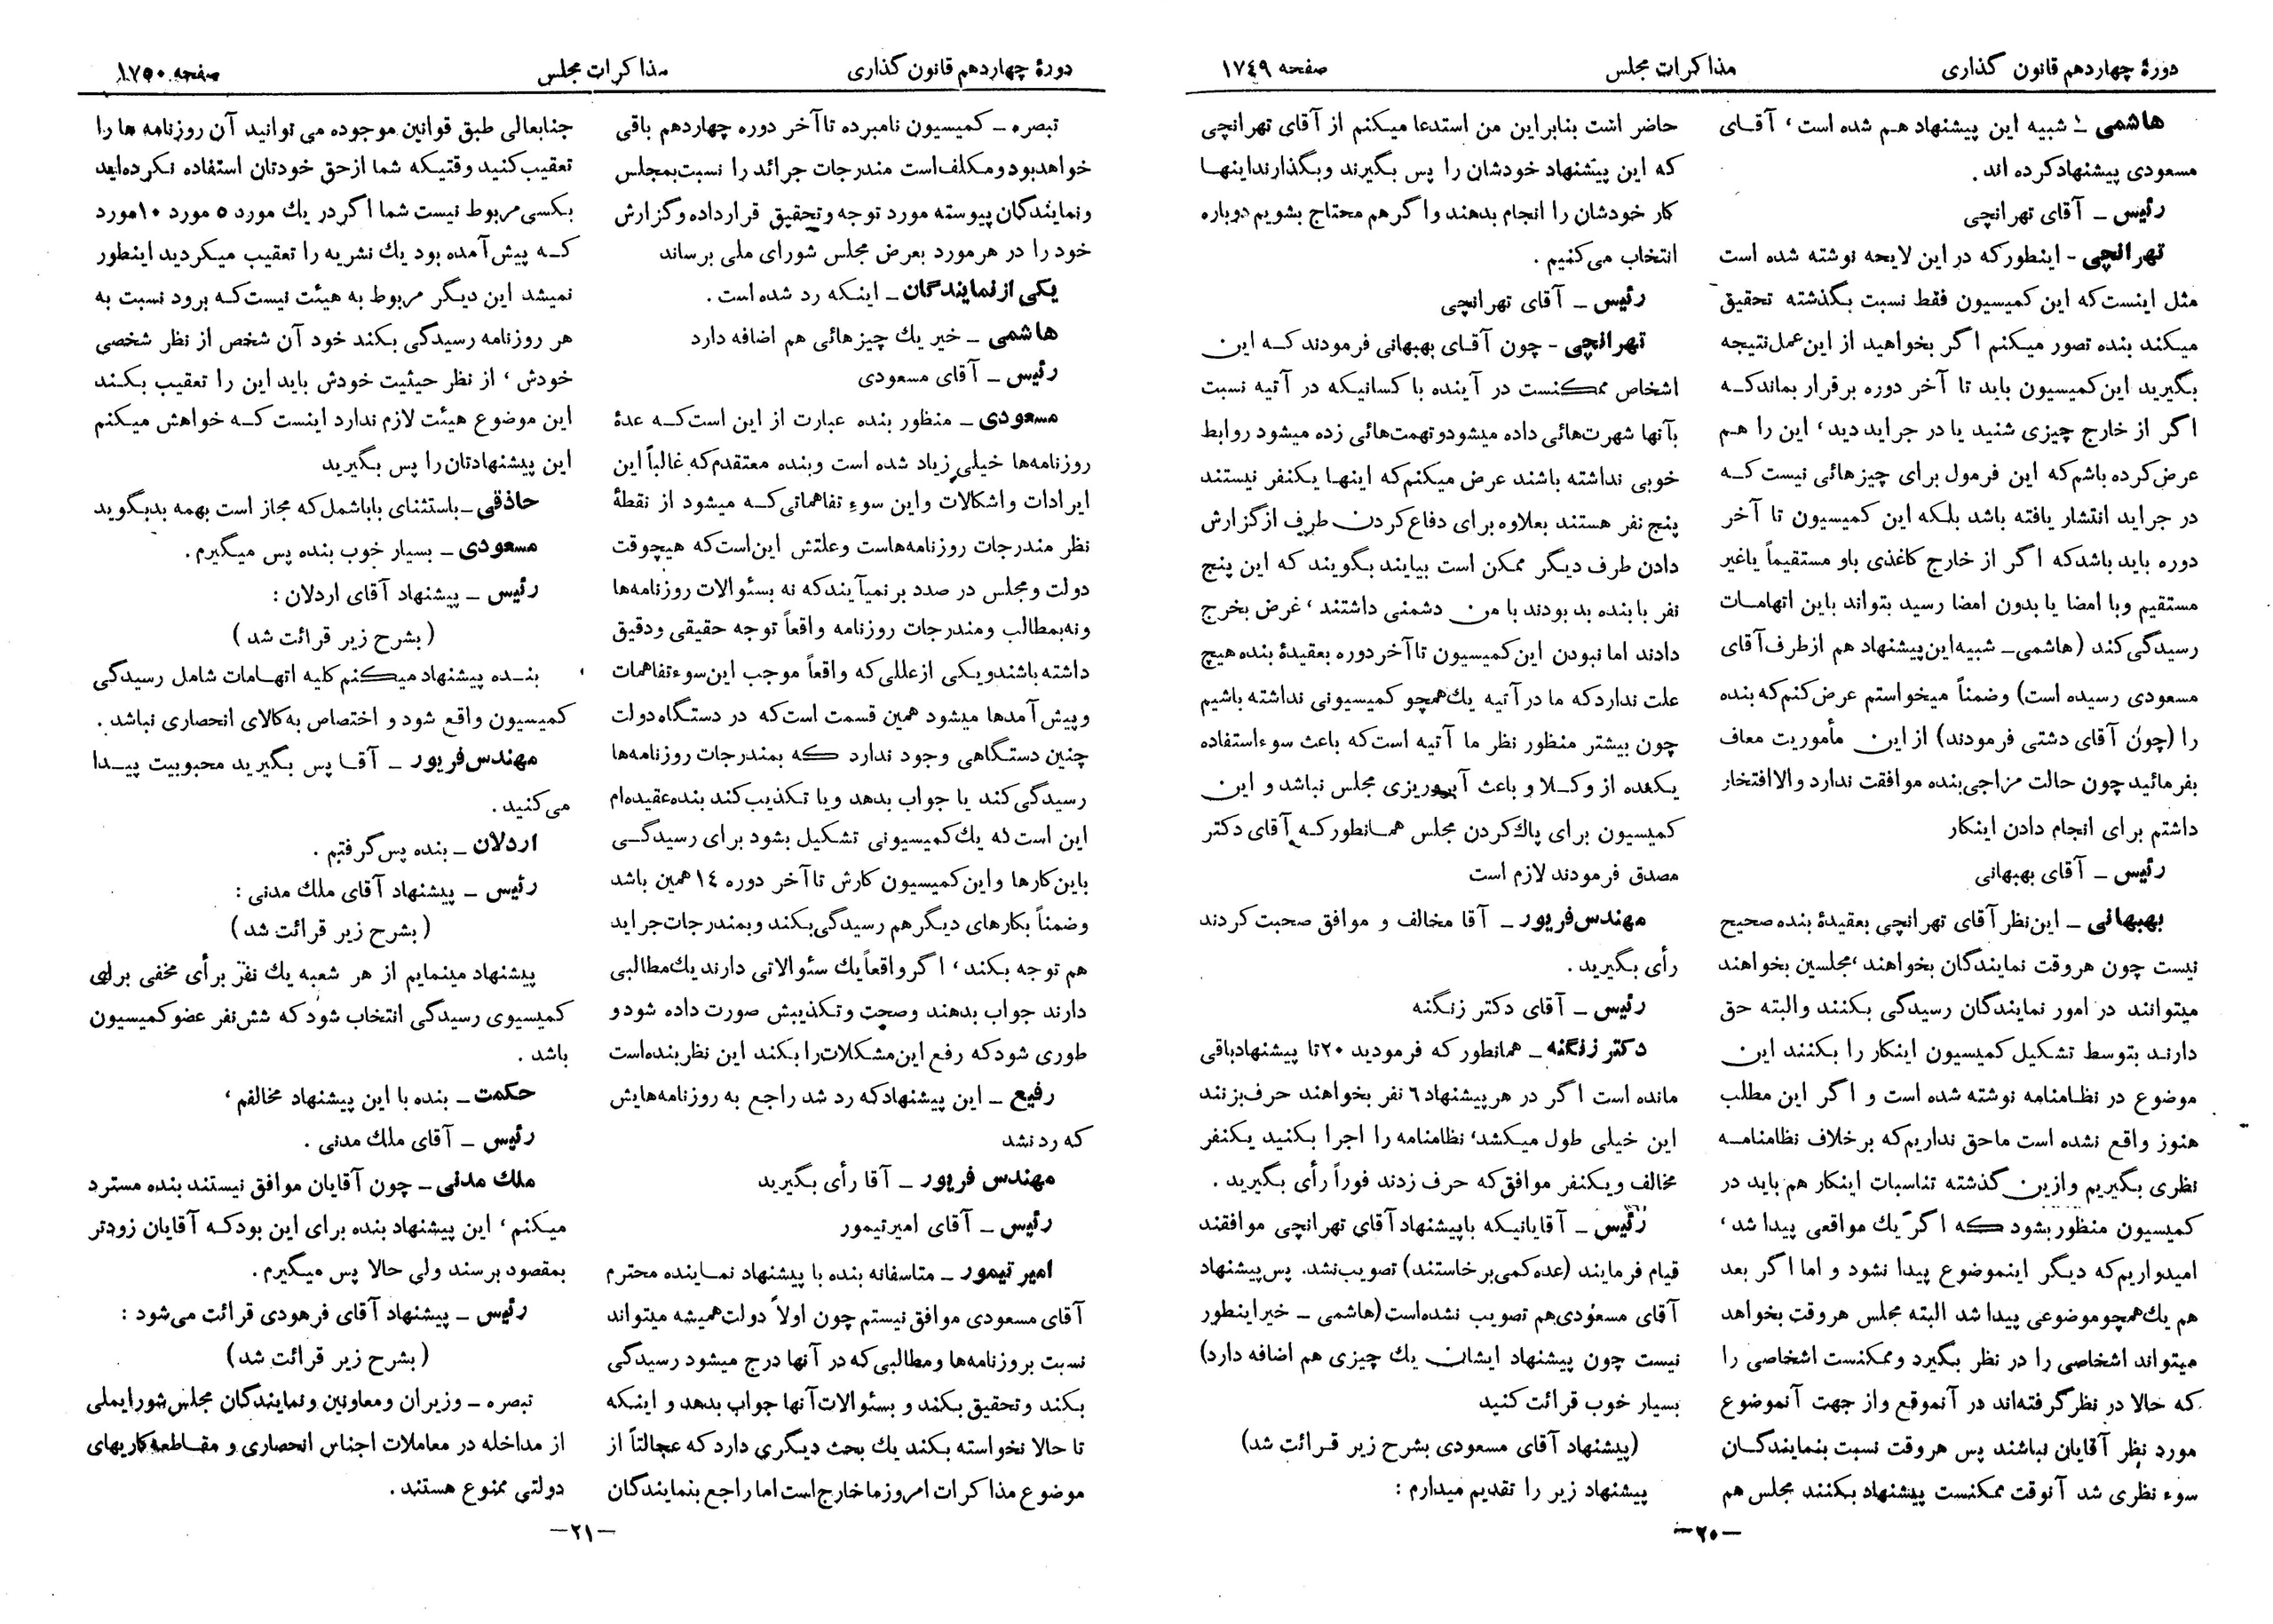 دورهٔ چهاردهم قانون گذاری
مذاکرات مجلس
صفحه ۱۷٤۹
هاشمی ـ شبیه این پیشنهاد هم شده است، آقای
مسعودی پیشنهاد کرده اند.
رئیس ـ آقای تهرانچی
تهرانچی - اینطور که در این لایحه نوشته شده است
مثل اینست که این کمیسیون فقط نسبت بگذشته تحقیق
میکند بنده تصور میکنم اگر بخواهید از این عمل نتیجه
بگیرید این کمیسیون باید تا آخر دوره برقرار بماند که
اگر از خارج چیزی شنید یا در جراید دید، این را هم
عرض کرده باشم که این فرمول برای چیزهائی نیست که
در جراید انتشار یافته باشد بلکه این کمیسیون تا آخر
دوره باید باشد که اگر از خارج کاغذی باو مستقیماً یا غیر
مستقیم و با امضا یا بدون امضا رسید بتواند باین اتهامات
رسیدگی کند (هاشمی ـ شبیه این پیشنهاد هم از طرف آقای
مسعودی رسیده است) وضمناً میخواستم عرض کنم که بنده
را (چون آقای دشتی فرمودند) از این مأموریت معاف
بفرمائید چون حالت مزاجی بنده موافقت ندارد والا افتخار
داشتم برای انجام دادن اینکار
رئیس ـ آقای بهبهانی
بهبهانی ـ این نظر آقای تهرانچی بعقیدهٔ بنده صحیح
نیست چون هر وقت نمایندگان بخواهند، مجلسین بخواهند
میتوانند در امور نمایندگان رسیدگی بکنند والبته حق
دارند بتوسط تشکیل کمیسیون اینکار را بکنند این
موضوع در نظامنامه نوشته شده است و اگر این مطلب
هنوز واقع نشده است ما حق نداریم که بر خلاف نظامنامه
نظری بگیریم وازین گذشته تناسبات اینکار هم باید در
کمیسیون منظور بشود که اگر یك مواقعی پیدا شد،
امیدواریم که دیگر اینموضوع پیدا نشود و اما اگر بعد
هم یك همچو موضوعی پیدا شد البته مجلس هر وقت بخواهد
میتواند اشخاصی را در نظر بگیرد و ممکنست اشخاصی را
که حالا در نظر گرفته‌اند در آنموقع واز جهت آنموضوع
مورد نظر آقایان نباشند پس هر وقت نسبت بنمایندگان
سوء نظری شد آنوقت ممکنست پیشنهاد بکنند مجلس هم
حاضر است بنابراین من استدعا میکنم از آقای تهرانچی
که این پیشنهاد خودشان را پس بگیرند وبگذارند اینها
کار خودشان را انجام بدهند واگر هم محتاج بشویم دوباره
انتخاب می‌کنیم.
رئیس ـ آقای تهرانچی
تهرانچی - چون آقای بهبهانی فرمودند که این
اشخاص ممکنست در آینده با کسانیکه در آتیه نسبت
بآنها شهرت‌هائی داده میشود و تهمت‌هائی زده میشود روابط
خوبی نداشته باشند عرض میکنم که اینها یکنفر نیستند
پنج نفر هستند بعلاوه برای دفاع کردن طرف از گزارش
دادن طرف دیگر ممکن است بیایند بگویند که این پنج
نفر با بنده بد بودند با من دشمنی داشتند، غرض بخرج
دادند اما نبودن این کمیسیون تا آخر دوره بعقیدهٔ بنده هیچ
علت ندارد که ما در آتیه یك همچو کمیسیونی نداشته باشیم
چون بیشتر منظور نظر ما آتیه است که باعث سوء استفاده
یکعده از وکلا و باعث آبروریزی مجلس نباشد و این
کمیسیون برای پاك کردن مجلس همانطور که آقای دکتر
مصدق فرمودند لازم است
مهندس فریور ـ آقا مخالف و موافق صحبت کردند
رأی بگیرید.
رئیس ـ آقای دکتر زنگنه
دکتر زنگنه ـ همانطور که فرمودید ۲۰ تا پیشنهاد باقی
مانده است اگر در هر پیشنهاد ٦ نفر بخواهند حرف بزنند
این خیلی طول میکشد، نظامنامه را اجرا بکنید یکنفر
مخالف ویکنفر موافق که حرف زدند فوراً رأی بگیرید.
رئیس ـ آقایانیکه با پیشنهاد آقای تهرانچی موافقند
قیام فرمایند (عده کمی برخاستند) تصویب نشد. پس پیشنهاد
آقای مسعودی هم تصویب نشده است (هاشمی ـ خیر اینطور
نیست چون پیشنهاد ایشان یك چیزی هم اضافه دارد)
بسیار خوب قرائت کنید
(پیشنهاد آقای مسعودی بشرح زیر قرائت شد)
پیشنهاد زیر را تقدیم میدارم:
ـ۲۰ـ
دورهٔ چهاردهم قانون گذاری
مذاکرات مجلس
صفحه ۱۷۵۰
تبصره ـ کمیسیون نامبرده تا آخر دوره چهاردهم باقی
خواهد بود و مکلف است مندرجات جرائد را نسبت بمجلس
ونمایندگان پیوسته مورد توجه و تحقیق قرار داده و گزارش
خود را در هر مورد بعرض مجلس شورای ملی برساند
یکی از نمایندگان ـ اینکه رد شده است.
هاشمی ـ خیر یك چیزهائی هم اضافه دارد
رئیس ـ آقای مسعودی
مسعودی ـ منظور بنده عبارت از این است که عدهٔ
روزنامه‌ها خیلی زیاد شده است وبنده معتقدم که غالباً این
ایرادات واشکالات واین سوء تفاهماتی که میشود از نقطهٔ
نظر مندرجات روزنامه‌هاست و علتش این است که هیچوقت
دولت و مجلس در صدد بر نمیآیند که نه بسئوالات روزنامه‌ها
ونه بمطالب ومندرجات روزنامه واقعاً توجه حقیقی و دقیق
داشته باشند و یکی از عللی که واقعاً موجب این سوء تفاهمات
و پیش آمدها میشود همین قسمت است که در دستگاه دولت
چنین دستگاهی وجود ندارد که بمندرجات روزنامه‌ها
رسیدگی کند یا جواب بدهد و یا تکذیب کند بنده عقیده‌ام
این است که یك کمیسیونی تشکیل بشود برای رسیدگی
باین کارها و این کمیسیون کارش تا آخر دوره ۱٤ همین باشد
وضمناً بکارهای دیگر هم رسیدگی بکند و بمندرجات جراید
هم توجه بکند، اگر واقعاً یك سئوالاتی دارند یك مطالبی
دارند جواب بدهند وصحت و تکذیبش صورت داده شود و
طوری شود که رفع این مشکلات را بکند این نظر بنده است
رفیع ـ این پیشنهاد که رد شد راجع به روزنامه‌هایش
که رد نشد
مهندس فریور ـ آقا رأی بگیرید
رئیس ـ آقای امیرتیمور
امیر تیمور ـ متاسفانه بنده با پیشنهاد نماینده محترم
آقای مسعودی موافق نیستم چون اولاً دولت همیشه میتواند
نسبت بروزنامه‌ها ومطالبی که در آنها درج میشود رسیدگی
بکند و تحقیق بکند و بسئوالات آنها جواب بدهد و اینکه
تا حالا نخواسته بکند یك بحث دیگری دارد که عجالتاً از
موضوع مذاکرات امروز ما خارج است اما راجع بنمایندگان
جنابعالی طبق قوانین موجوده می توانید آن روزنامه ها را
تعقیب کنید وقتیکه شما از حق خودتان استفاده نکرده‌اید
بکسی مربوط نیست شما اگر در یك مورد ۵ مورد ۱۰ مورد
که پیش آمده بود یك نشریه را تعقیب میکردید اینطور
نمیشد این دیگر مربوط به هیئت نیست که برود نسبت به
هر روزنامه رسیدگی بکند خود آن شخص از نظر شخصی
خودش، از نظر حیثیت خودش باید این را تعقیب بکند
این موضوع هیئت لازم ندارد اینست که خواهش میکنم
این پیشنهادتان را پس بگیرید
حاذقی ـ باستثنای باباشمل که مجاز است بهمه بدبگوید
مسعودی ـ بسیار خوب بنده پس میگیرم.
رئیس ـ پیشنهاد آقای اردلان:
(بشرح زیر قرائت شد)
بنده پیشنهاد میکنم کلیه اتهامات شامل رسیدگی
کمیسیون واقع شود و اختصاص به کالای انحصاری نباشد.
مهندس فریور ـ آقا پس بگیرید محبوبیت پیدا
می‌کنید.
اردلان ـ بنده پس گرفتم.
رئیس ـ پیشنهاد آقای ملك مدنی:
(بشرح زیر قرائت شد)
پیشنهاد مینمایم از هر شعبه یك نفر برأی مخفی برای
کمیسیوی رسیدگی انتخاب شود که شش نفر عضو کمیسیون
باشد.
حکمت ـ بنده با این پیشنهاد مخالفم،
رئیس ـ آقای ملك مدنی.
ملك مدنی ـ چون آقایان موافق نیستند بنده مسترد
میکنم، این پیشنهاد بنده برای این بود که آقایان زودتر
بمقصود برسند ولی حالا پس میگیرم.
رئیس ـ پیشنهاد آقای فرهودی قرائت می‌شود:
(بشرح زیر قرائت شد)
تبصره ـ وزیران ومعاونین ونمایندگان مجلس شورایملی
از مداخله در معاملات اجناس انحصاری و مقاطعه کاریهای
دولتی ممنوع هستند.
ـ۲۱ـ